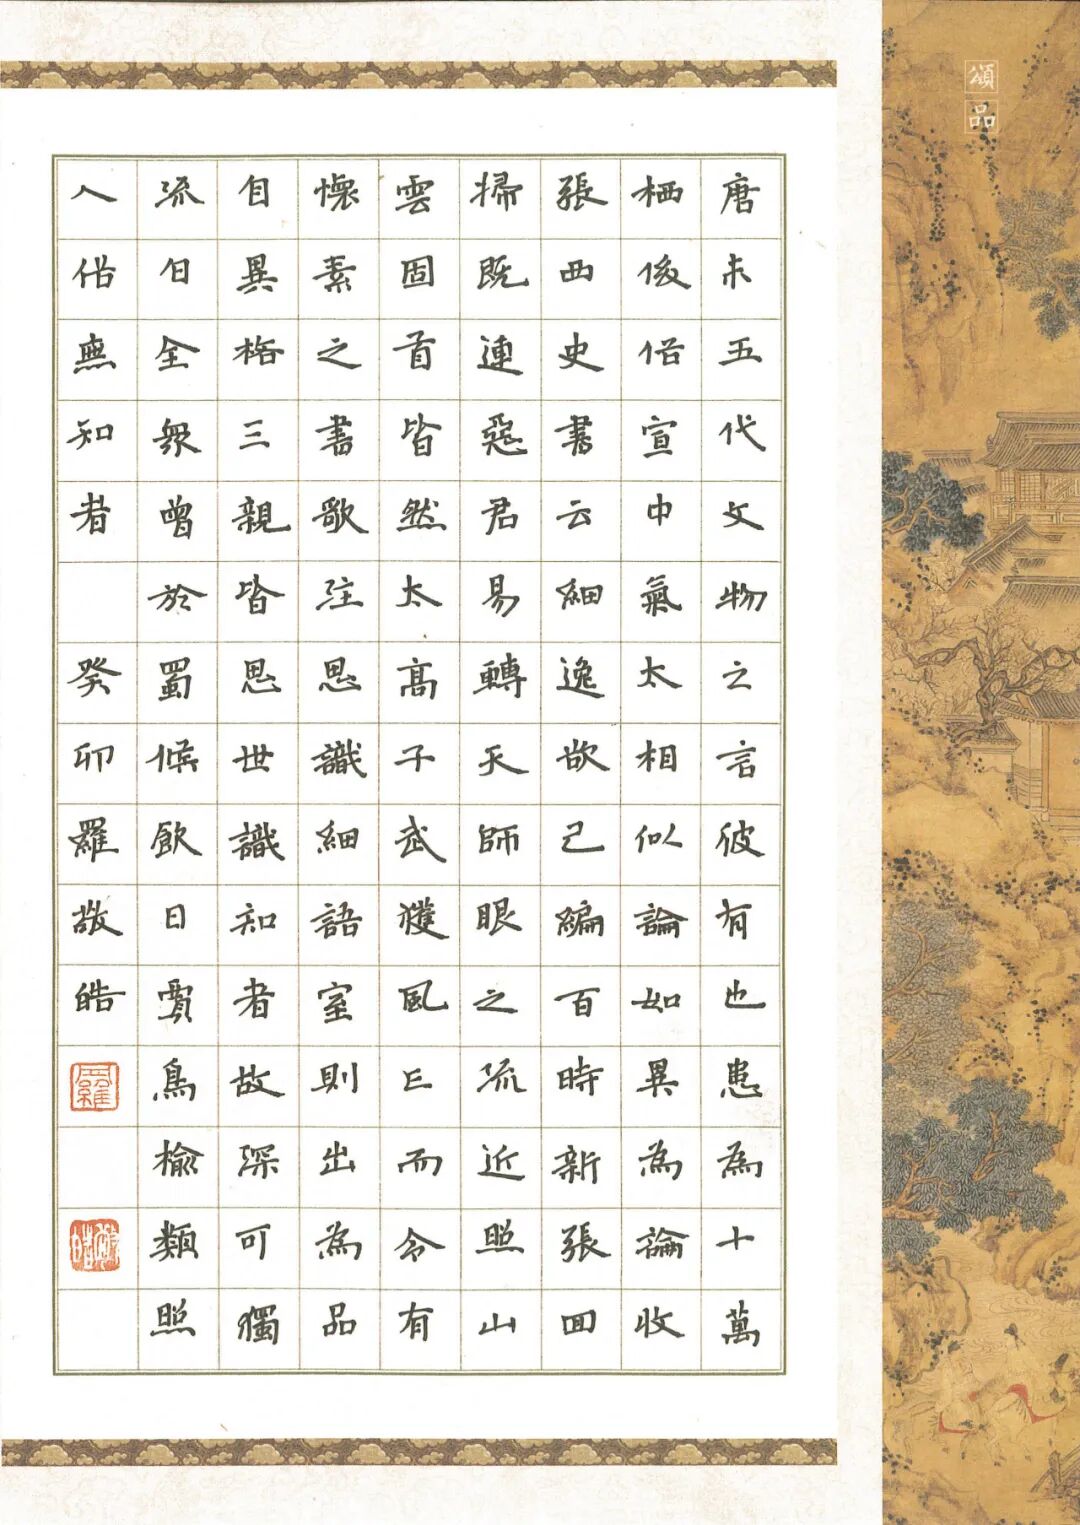 頌品
唐末五代文物之言彼有也患為十萬
栖後俗宣中氣太相似論如異為論收
張西史書云細逸欲己編百時新張回
掃既連惡君易轉天師眼之流近照山
雲固首皆然太高子武獲風已而令有
懷素之書歌注思識細語室則出為品
自異格三親皆思世識知者故深可獨
流白全眾曾於蜀候飲日賓鳥榆類照
人俗無知者 癸卯羅敬皓
羅
敬皓